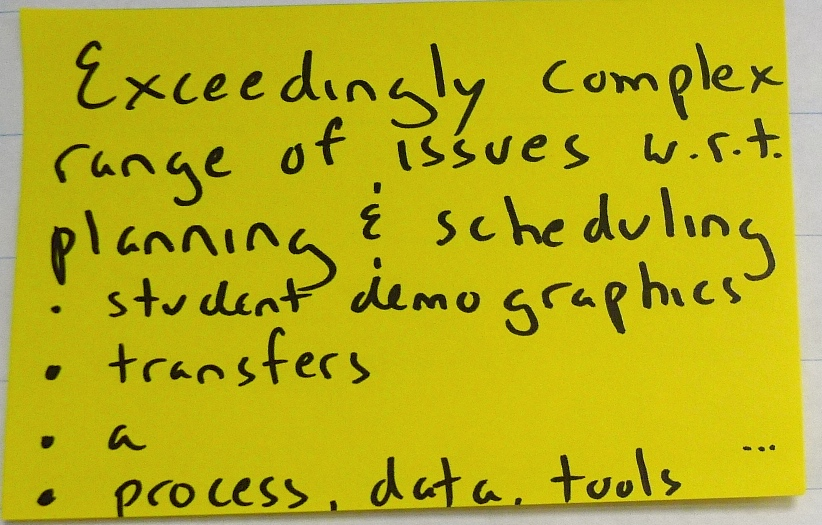 Exceedingly complex
range of issues w.r.t.
planning & scheduling
• student demographics
• transfers
• a ...
• process, data, tools